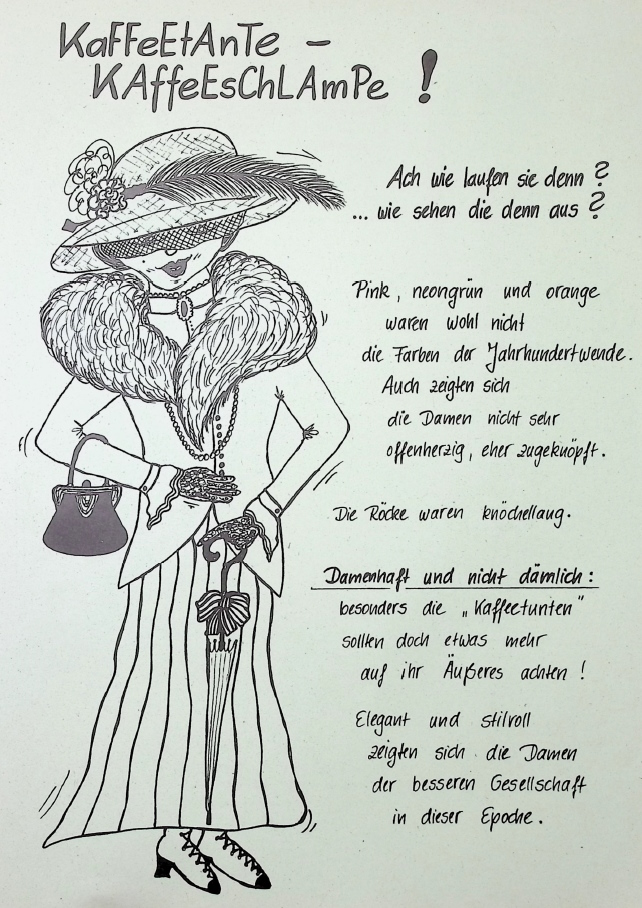 KaFFeEtAnTe –
KAffeEsChLAmPe !
Ach wie laufen sie denn ?
... wie sehen die denn aus ?
Pink, neongrün und orange
waren wohl nicht
die Farben der Jahrhundertwende.
Auch zeigten sich
die Damen nicht sehr
offenherzig, eher zugeknöpft.
Die Röcke waren knöchellang.
Damenhaft und nicht dämlich :
besonders die „Kaffeetunten"
sollten doch etwas mehr
auf ihr Äußeres achten !
Elegant und stilvoll
zeigten sich die Damen
der besseren Gesellschaft
in dieser Epoche.